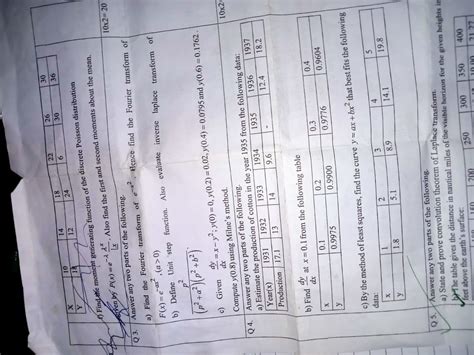 X 10 14 18 22 26 30
Y 18 12 24 6 30 36
Find the moment generating function of the discrete Poisson distribution
given by P(x) = e^-λ λ^x / |x Also find the first and second moments about the mean.
Q 3. Answer any two parts of the following. 10x2= 20
a) Find the Fourier transform of Hence find the Fourier transform of
F(x) = e^-ax², (a > 0)
b) Define Unit step function. Also evaluate inverse laplace transform of
p² / (p² + a²)(p² + b²)
c) Given dy/dx = x − y²; y(0) = 0, y(0.2) = 0.02, y(0.4) = 0.0795 and y(0.6) = 0.1762.
Compute y(0.8) using Milne's method.
Q 4. Answer any two parts of the following. 10x2
a) Estimate the production of cotton in the year 1935 from the following data:
Year(x) 1931 1932 1933 1934 1935 1936 1937
Production 17.1 13 14 9.6 12.4 18.2
b) Find dy/dx at x = 0.1 from the following table
x 0.1 0.2 0.3 0.4
y 0.9975 0.9900 0.9776 0.9604
c) By the method of least squares, find the curve y = ax + bx² that best fits the following
data:
x 1 2 3 4 5
y 1.8 5.1 8.9 14.1 19.8
Q 5. Answer any two parts of the following.
a) State and prove convolution theorem of Laplace transform.
The table gives the distance in nautical miles of the visible horizon for the given heights in
feet above the earth's surface:
250 300 350 400